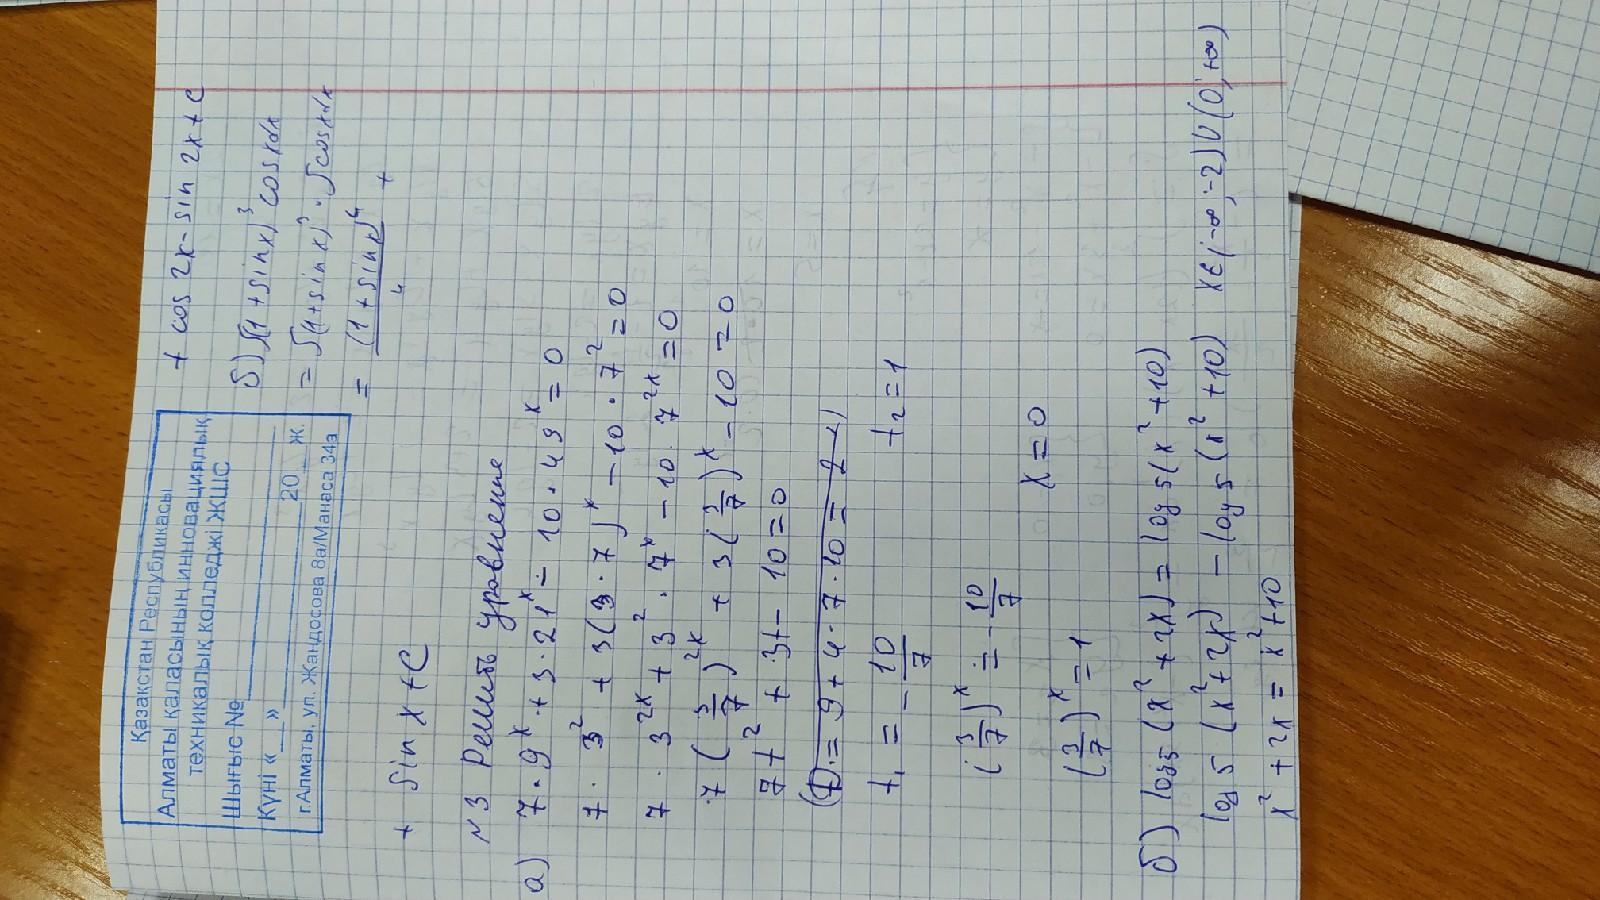 Қазақстан Республикасы
Алматы қаласының инновациялық
техникалық колледжі ЖШС
Шығыс №
Күні «__» ______ 20__ ж.
г.Алматы, ул. Жандосова 8а/Манаса 34а
+ cos 2x - sin 2x + c
б) ∫(1 + sin x)³ cos x dx
= ∫(1 + sin x)³ · ∫cos x dx
= (1 + sin x)⁴ / 4 +
+ sin x + C
№3 Решить уравнение
а) 7 · 9ˣ + 3 · 21ˣ - 10 · 49ˣ = 0
7 · 3² + 3(3 · 7)ˣ - 10 · 7² = 0
7 · 3²ˣ + 3² · 7ˣ - 10 · 7²ˣ = 0
7 (3/7)²ˣ + 3 (3/7)ˣ - 10 = 0
7t² + 3t - 10 = 0
t₁ = - 10/7 t₂ = 1
(3/7)ˣ = - 10/7
(3/7)ˣ = 1 x = 0
б) log 5 (x² + 2x) = log 5 (x² + 10)
log 5 (x² + 2x) - log 5 (x² + 10) x ∈ (-∞; -2) ∪ (0; +∞)
x² + 2x = x² + 10